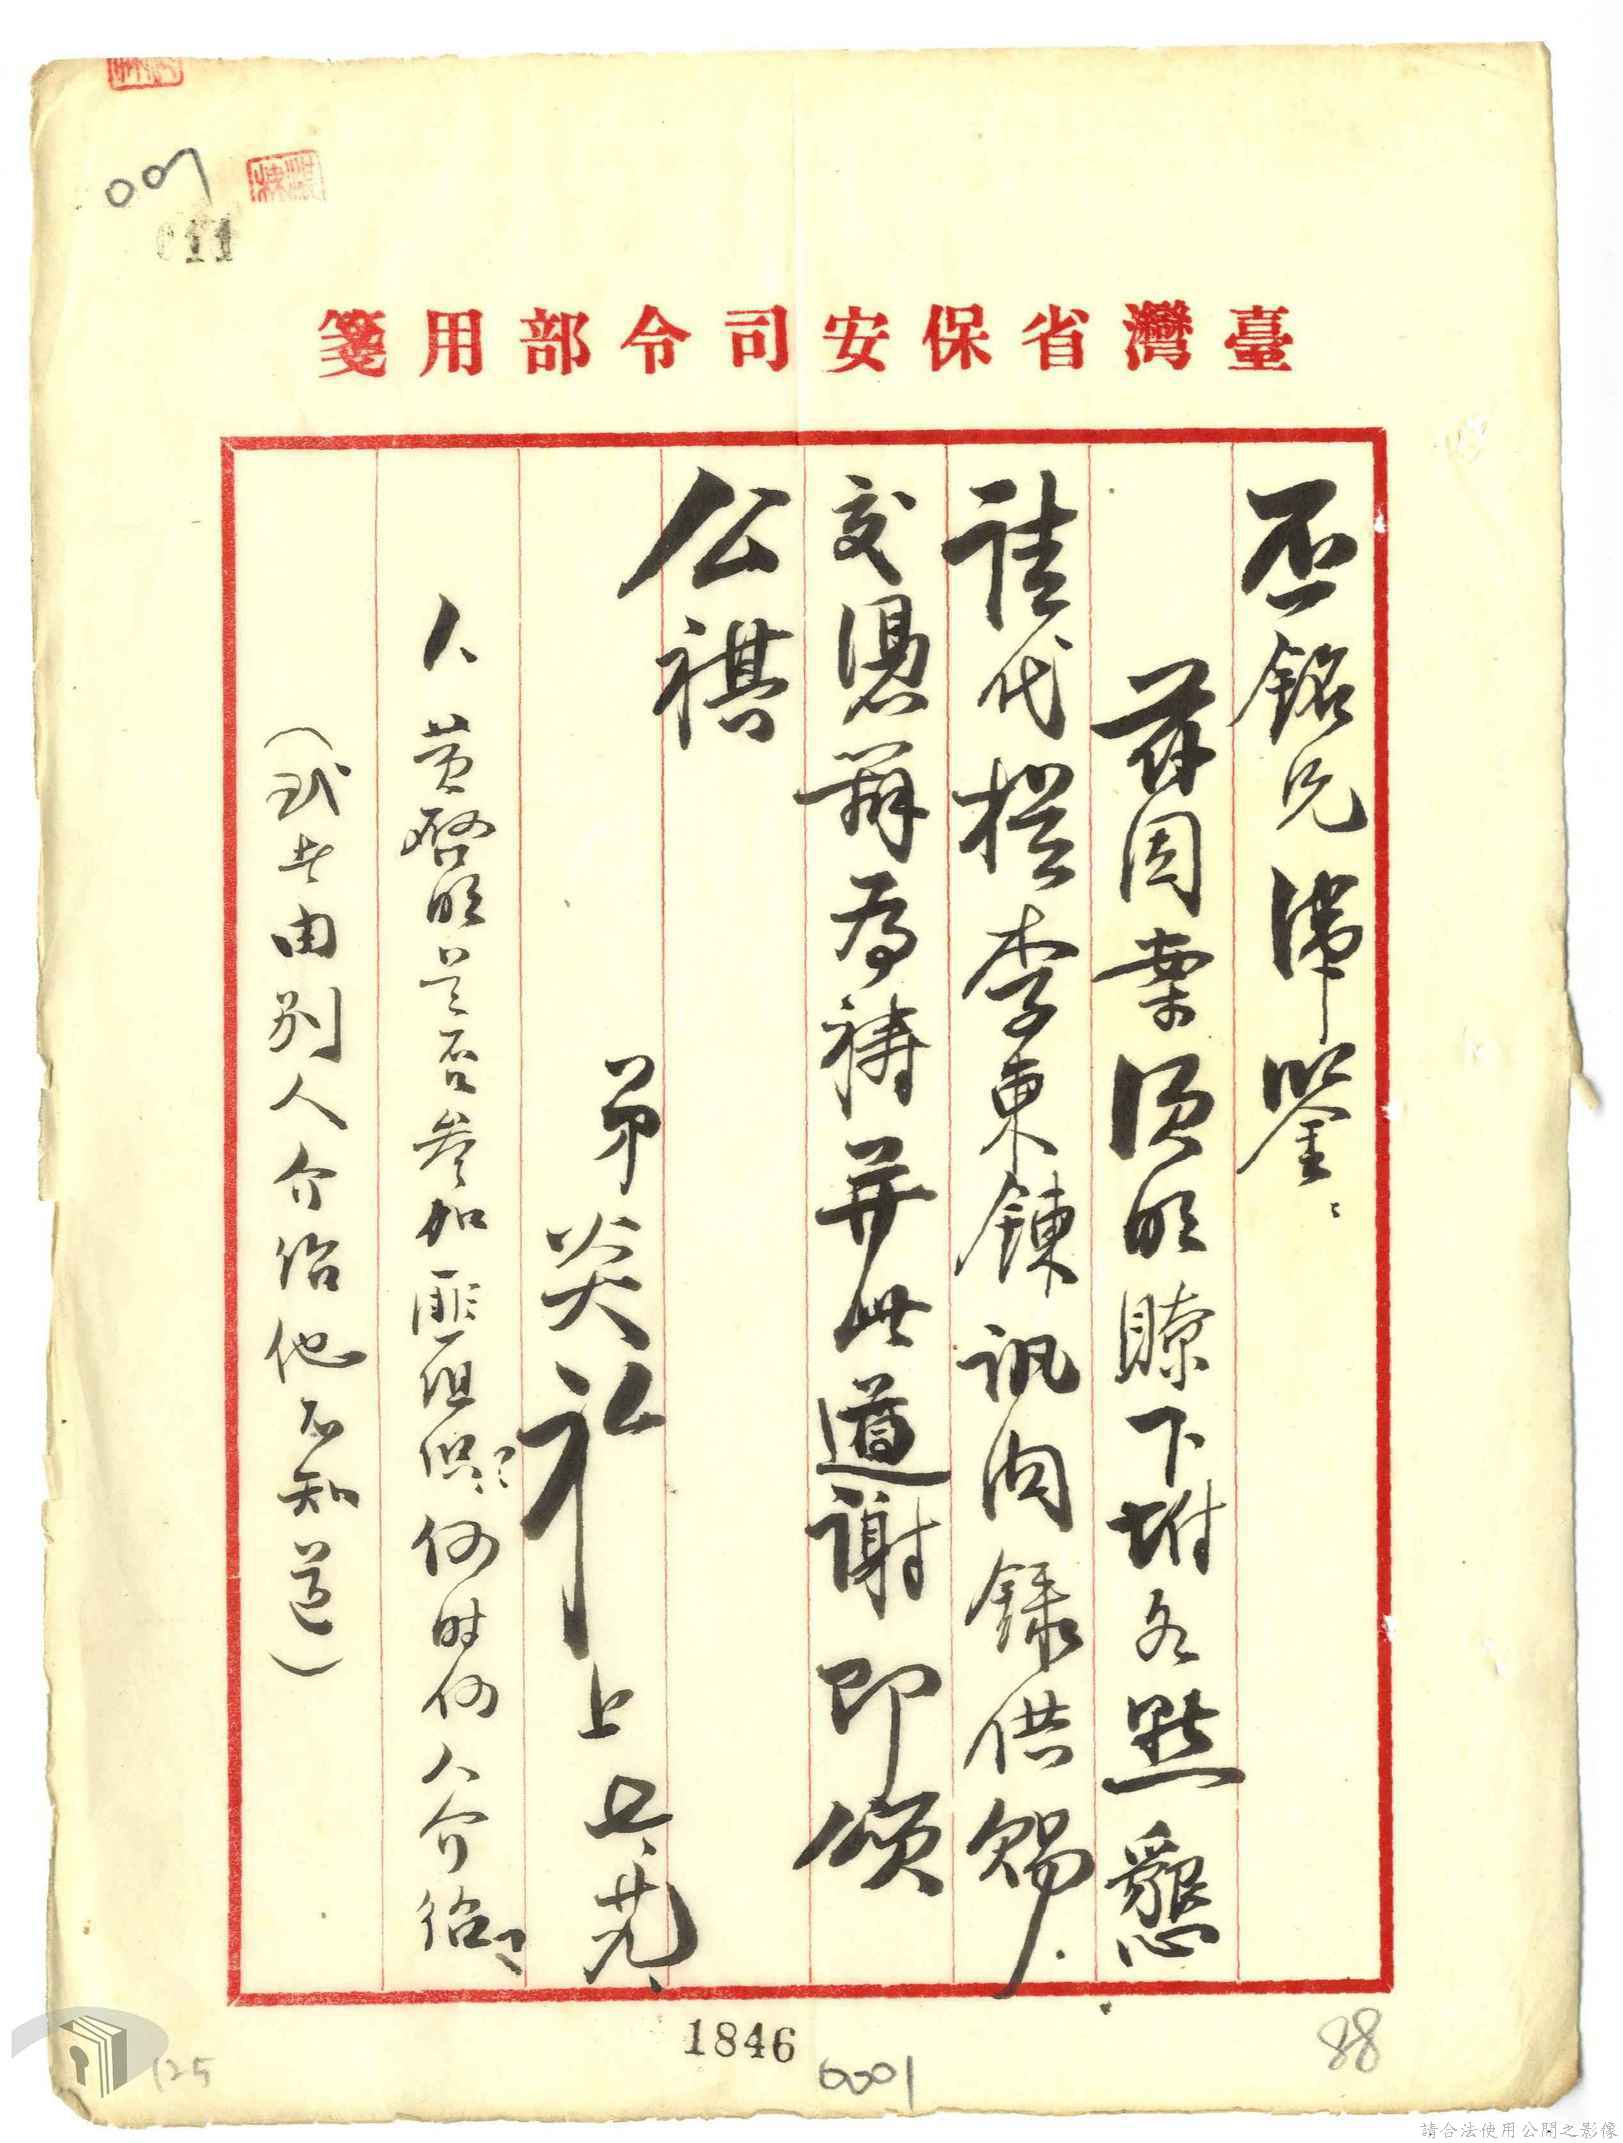 007
011
臺灣省保安司令部用箋
丕銘兄偉鑒：
茲因案須明瞭下坿各點懇
請代提李東鍊訊問錄供賜
交憑辦為禱并此道謝即頌
公祺
弟炎
上七、廿九、
人黃啓明是否參加匪組織？何時何人介紹？
（或者由別人介紹他不知道）
1846
0001
88
125
請合法使用公開之影像